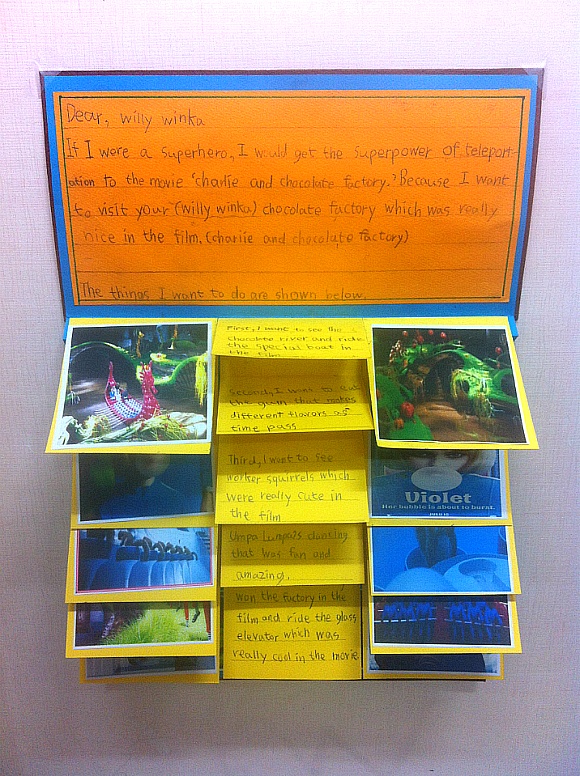 Dear, willy winka
If I were a superhero, I would get the superpower of teleport-
ation to the movie 'charlie and chocolate factory.' Because I want
to visit your (willy winka) chocolate factory which was really
nice in the film. (charlie and chocolate factory)
The things I want to do are shown below.
First, I want to see the
chocolate river and ride
the special boat in
the film
Second, I want to eat
the gum that makes
different flavors as
time pass
Third, I want to see
worker squirrels which
were really cute in
the film
Violet
Her bubble is about to burst.
Umpa Lumpa's dancing
that was fun and
amazing.
won the factory in the
film and ride the glass
elevator which was
really cool in the movie